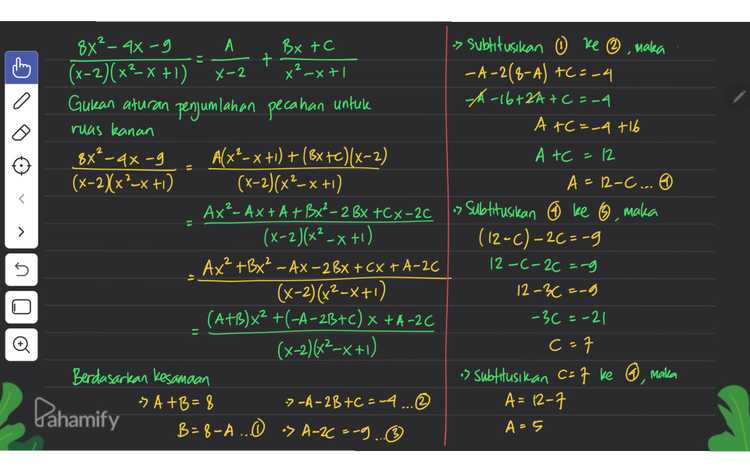 8x² - 4x - 9 / (x-2)(x² - x + 1) = A / x-2 + Bx + C / x² - x + 1
Gukan aturan penjumlahan pecahan untuk
ruas kanan
8x² - 4x - 9 / (x-2)(x² - x + 1) = A(x² - x + 1) + (Bx + C)(x-2) / (x-2)(x² - x + 1)
= Ax² - Ax + A + Bx² - 2Bx + Cx - 2C / (x-2)(x² - x + 1)
= Ax² + Bx² - Ax - 2Bx + Cx + A - 2C / (x-2)(x² - x + 1)
= (A+B)x² + (-A - 2B + C)x + A - 2C / (x-2)(x² - x + 1)
Berdasarkan kesamaan
-> A + B = 8
B = 8 - A ... ①
-> -A - 2B + C = -4 ... ②
-> A - 2C = -9 ... ③
-> Subtitusikan ① ke ②, maka
-A - 2(8-A) + C = -4
-A - 16 + 2A + C = -4
A + C = -4 + 16
A + C = 12
A = 12 - C ... ④
-> Subtitusikan ④ ke ③, maka
(12-C) - 2C = -9
12 - C - 2C = -9
12 - 3C = -9
-3C = -21
C = 7
-> Subtitusikan C = 7 ke ④, maka
A = 12 - 7
A = 5
Pahamify